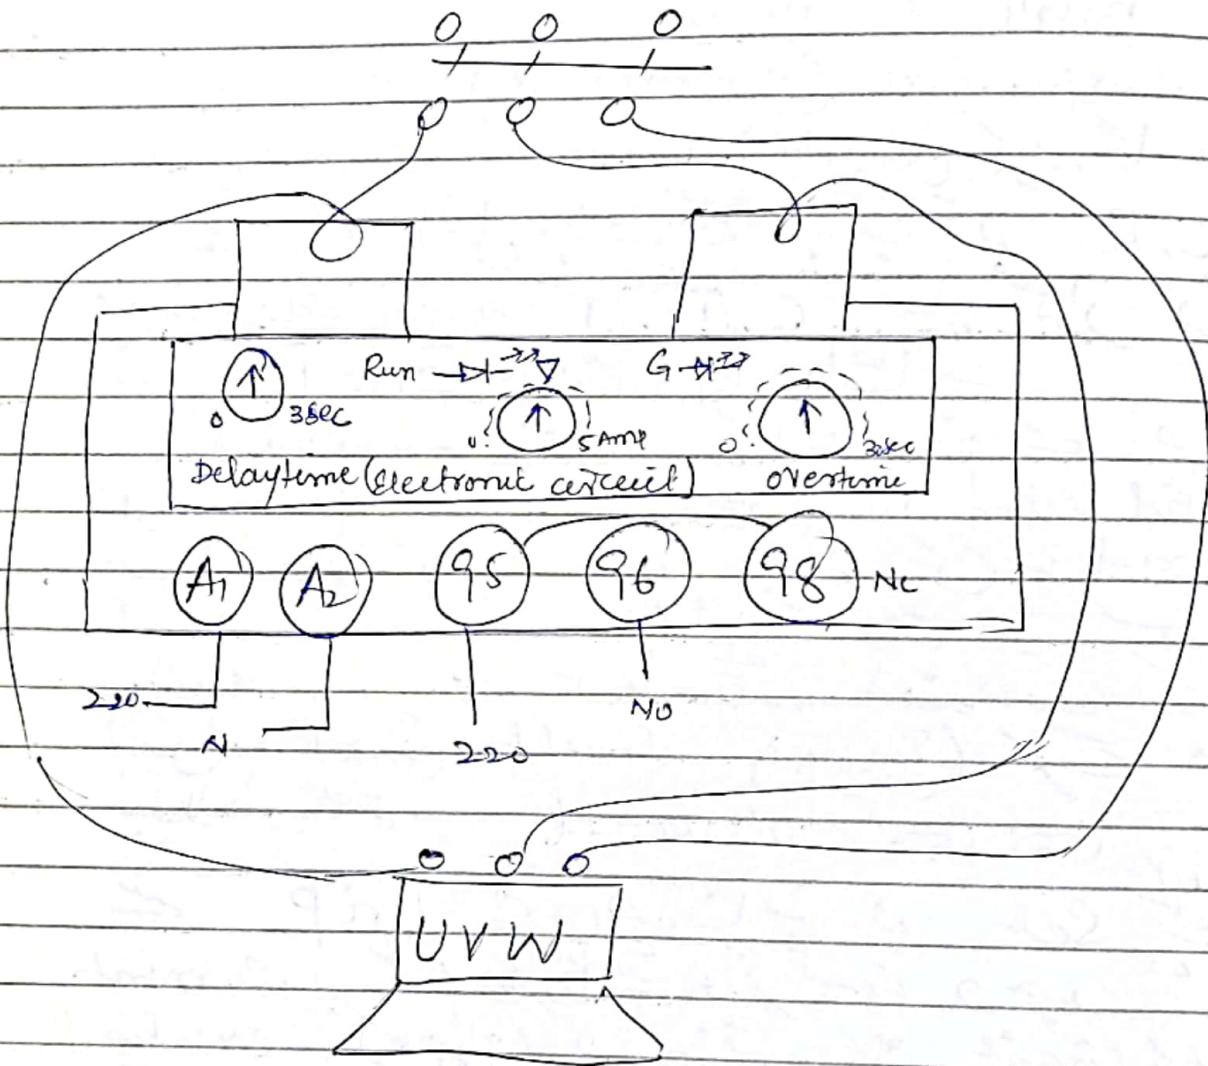 O O O
O O O
Run G
0 3sec 0 5Amp 0 30sec
Delaytime (Electronic circuit) overtime
A1 A2 95 96 98 NC
220 N 220 NO
U V W